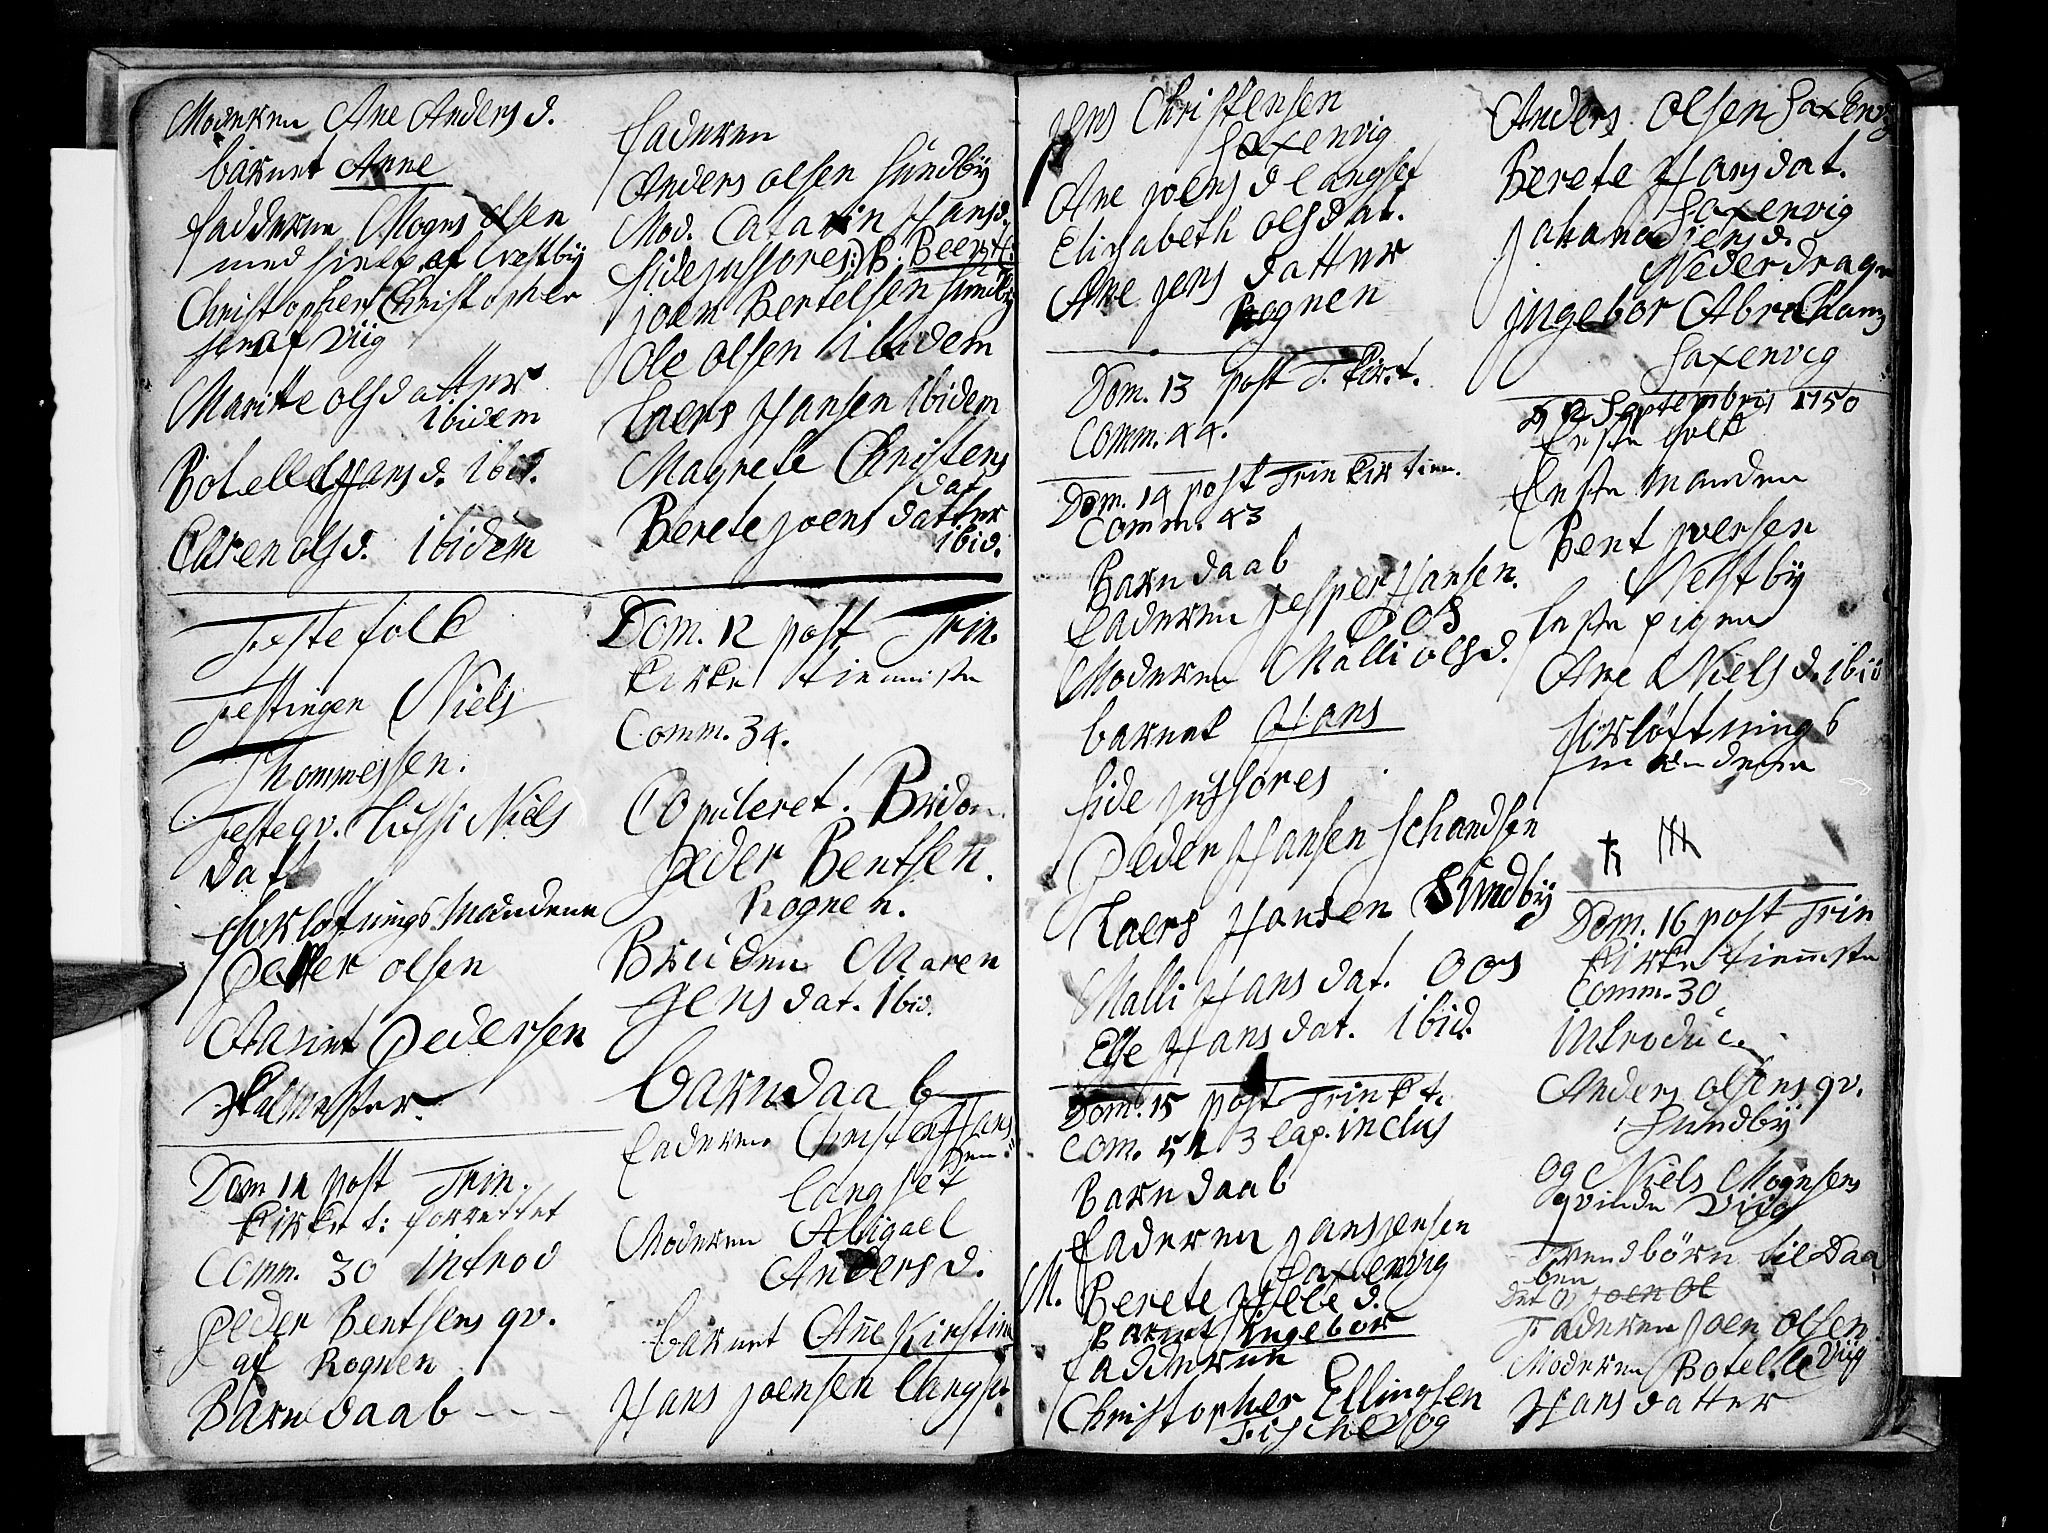 Moderen Ane Anders d.
barnet Anne
fadderne Mogns olsen
med hielp af Vestbÿ
Christopher Christopher
sen af Viig
Maritte olsdatter
ibidem
Botelle Hans d. ibid.
Caren ols d. ibidem
Festefolk
Festingen Niels
Thommessen.
Festeqv. Niels
datt
forløftnings Mændene
Peder olsen
Pedersen
Dom 11 post Trin.
kirke t: forrettet
Comm. 30 Introd
Peder Bentsens qv.
af Rognen
Barn daab - - -
faderen
Anders olsen Sundbÿ
Mod. Catarin Hansd.
fidejussores:) B. Beerth:
joen Bertelsen Sundbÿ
Ole olsen ibidem
Laers Hansen ibidem
Magrete Christens
dat
Berete joens datter
ibid.
Dom. 12 post Trin.
kirke tienniste
Comm. 34.
Copuleret. Brudom
Peder Bentsen.
Rognen.
Bruden Maren
Jens dat. ibid.
barndaab
faderen Christen Hans
sen
langset
Moderen Abigael
Anders d.
barnet Ane Kirstine
Hans joensen langset
jens Christensen
Saxenvig
Ane joens d langset
Elizabeth olsdat.
Ane jens datter
Rognen
Dom. 13 post T. kir. t.
Comm. 44.
Dom. 14 post Trin kir tien.
Comm. 43
Barn daab
faderen jesper Hansen.
Oos
Moderen Malli ols d.
barnet Hans
fide jussores
Peder Hansen schandsen
Laers Hansen Sundbÿ
Malli Hans dat. Oos
Else Hans dat. ibid.
Dom. 15 post Trin k t.
Com. 51 3 lap. inclus
Barn daab
faderen Hans jensen
Saxenvig
M. Berete d.
Barnet Ingebor
fadderne
Christopher Ellingsen
Fischer og
Anders olsen Saxenvig
Berete Hans dat.
Saxenvig
johanna jens d.
Nederdragn
jngebor Abrahams
Saxenvig
D 12 Septembris 1750
feste folk
feste manden
Bent jversen
Nestbÿ
feste pigen
Ane Niels d. ibid
forløftnings
mændene
Dom. 16 post Trin
kirke tienneste
Comm. 30
introduc.
Anders olsens qv.
Sundbÿ
og Niels Mognsens
qvinde Viig
Trendbörn til Daa
ben
joen ol
Faderen Joen olsen
Viig
Moderen Botelle
Hans datter